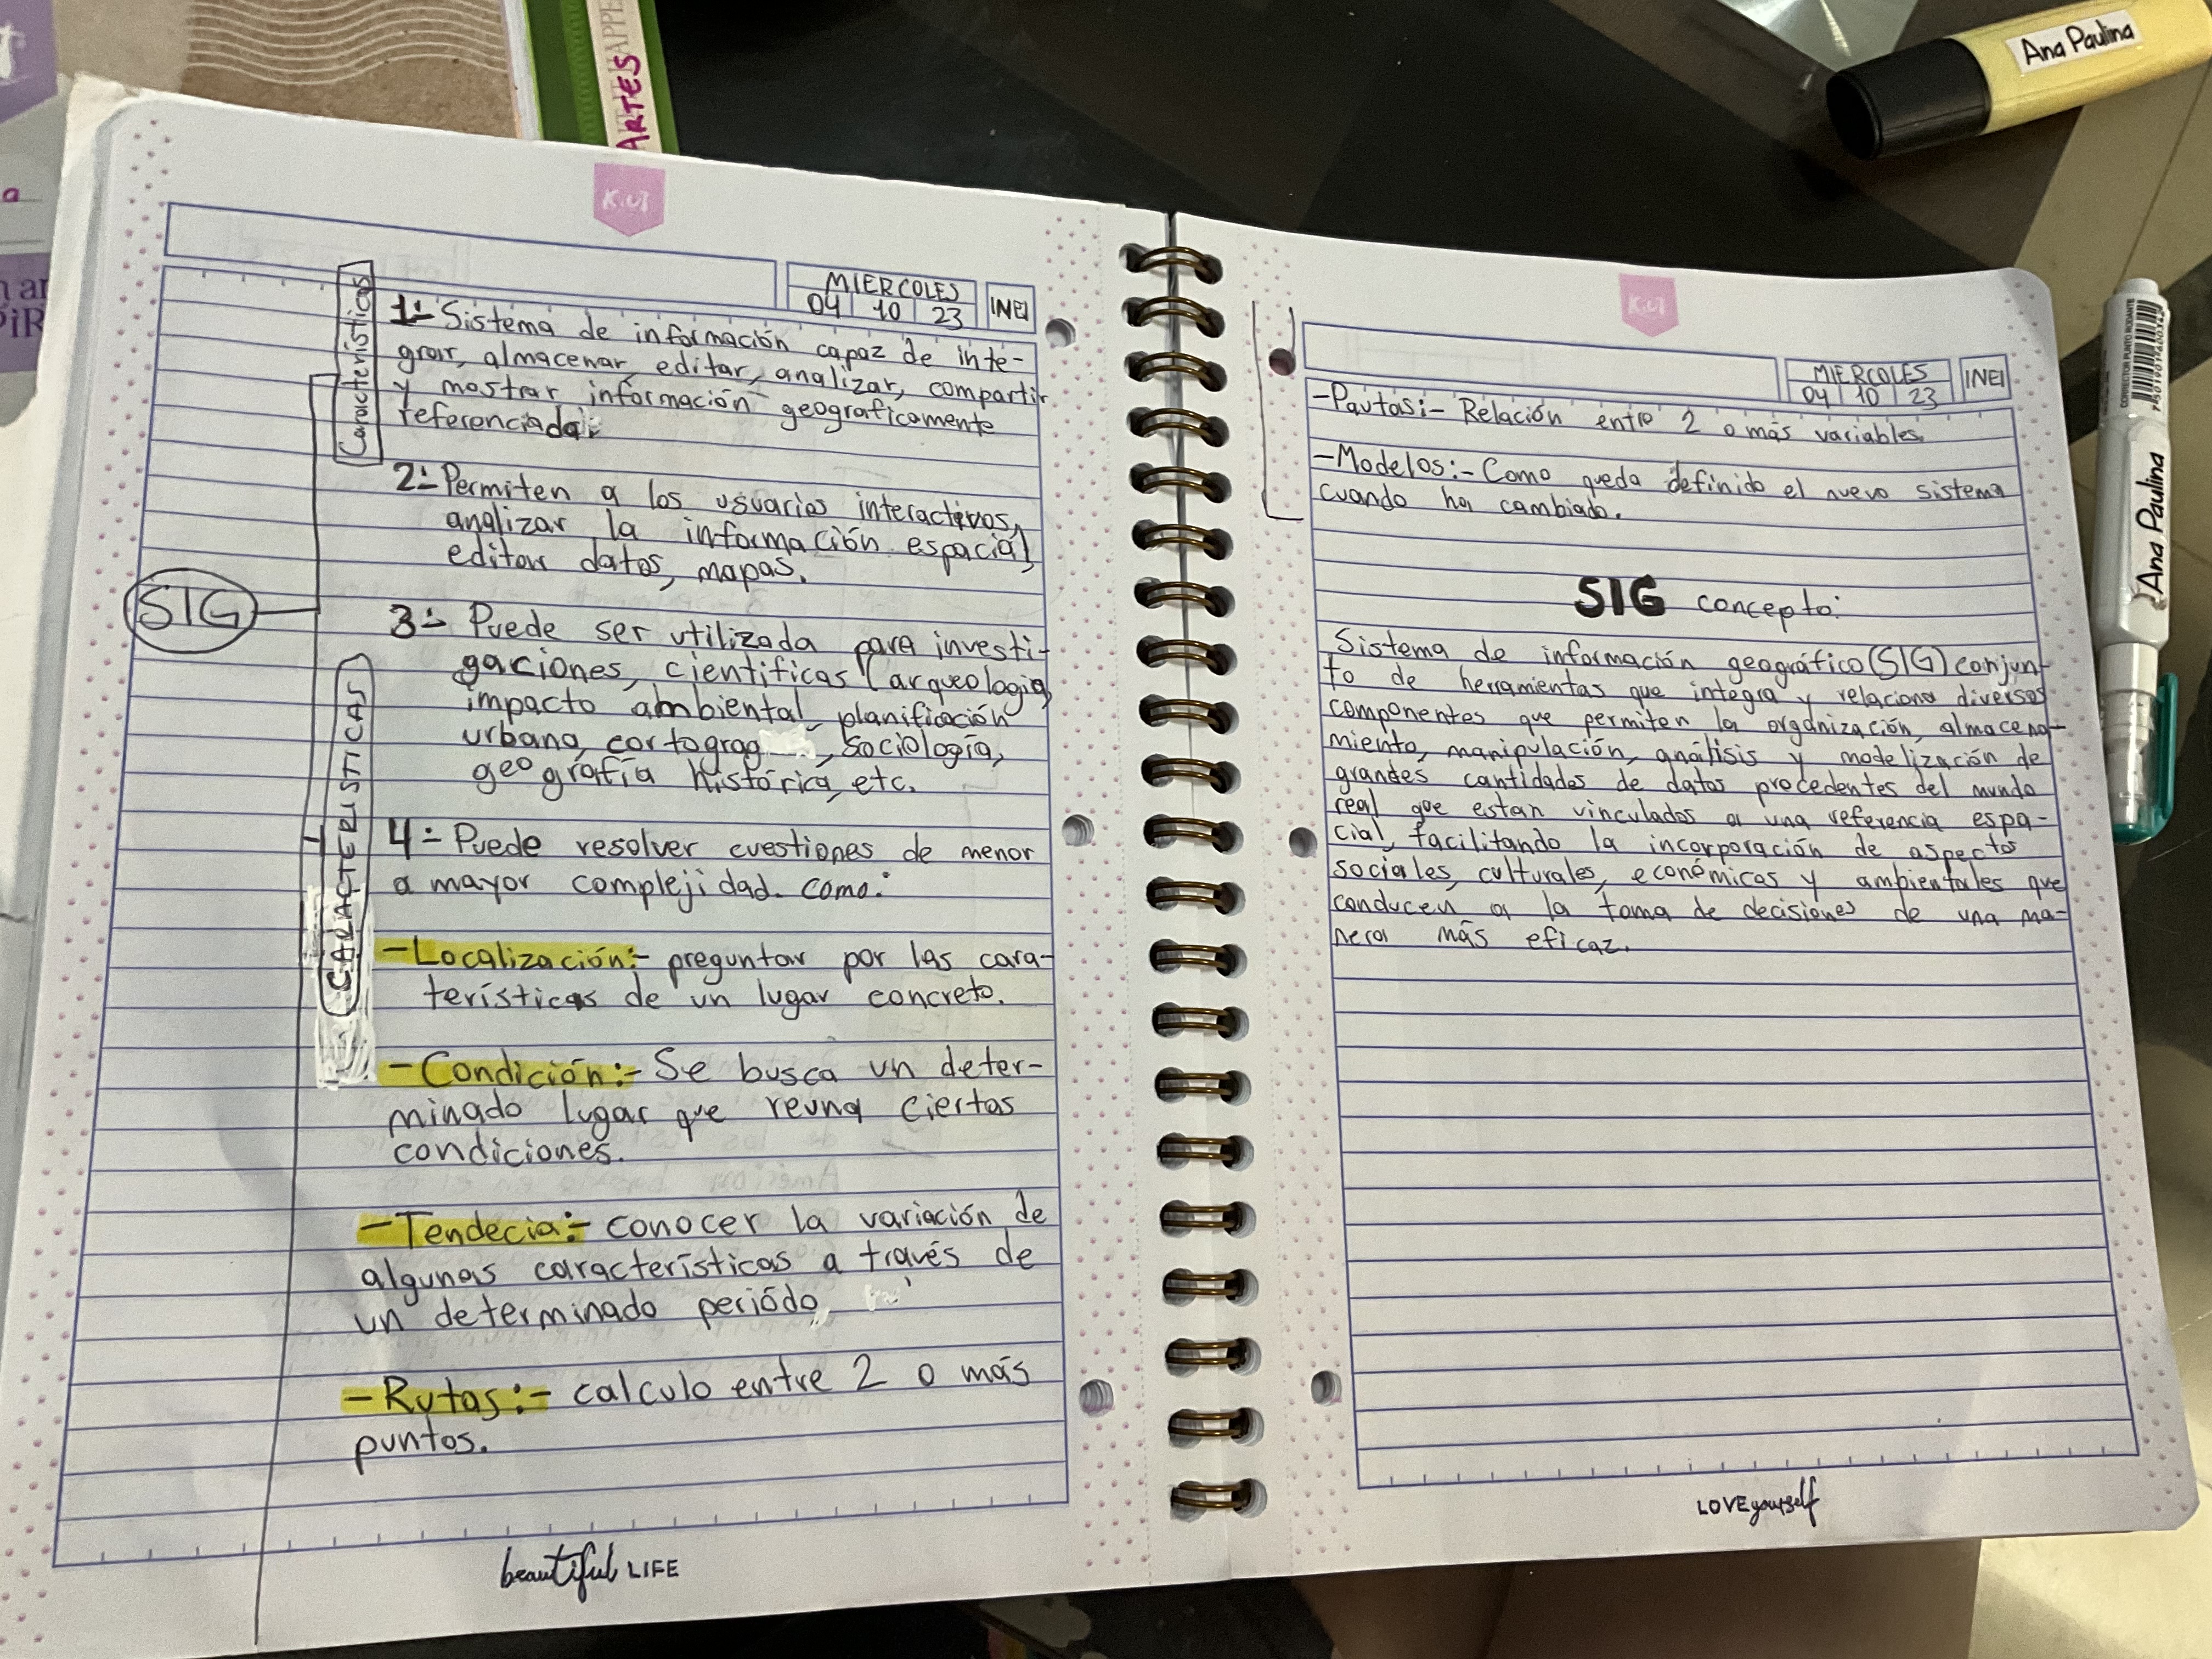 ARTES
Ana Paulina
K.UT
MIERCOLES
04 10 23
INEI
Características
1:- Sistema de información capaz de inte-
grar, almacenar, editar, analizar, compartir
y mostrar información geograficamente
referenciada.
2:- Permiten a los usuarios interactivos,
analizar la información espacial,
editar datos, mapas.
SIG
3:- Puede ser utilizada para investi-
gaciones, cientificas (arqueologia,
impacto ambiental, planificación
urbana, cartograg , sociología,
geografía histórica, etc.
CARACTERISTICAS
4:- Puede resolver cuestiones de menor
a mayor complejidad. como:
-Localización:- preguntar por las cara-
terísticas de un lugar concreto.
-Condición:- Se busca un deter-
minado lugar que reuna ciertas
condiciones.
-Tendecia:- conocer la variación de
algunas características a través de
un determinado periódo,
-Rutas:- calculo entre 2 o más
puntos.
beautiful LIFE
K.UT
MIERCOLES
04 10 23
INEI
-Pautas:- Relación entre 2 o más variables.
-Modelos:- Como queda definido el nuevo sistema
cuando ha cambiado.
SIG concepto:
Sistema de información geográfico (SIG) conjun-
to de herramientas que integra y relaciona diversos
componentes que permiten la organización, almacena-
miento, manipulación, análisis y modelización de
grandes cantidades de datos procedentes del mundo
real que estan vinculados a una referencia espa-
cial, facilitando la incorporación de aspectos
sociales, culturales, económicos y ambientales que
conducen a la toma de decisiones de una ma-
nera más eficaz.
LOVE yourself
Ana Paulina